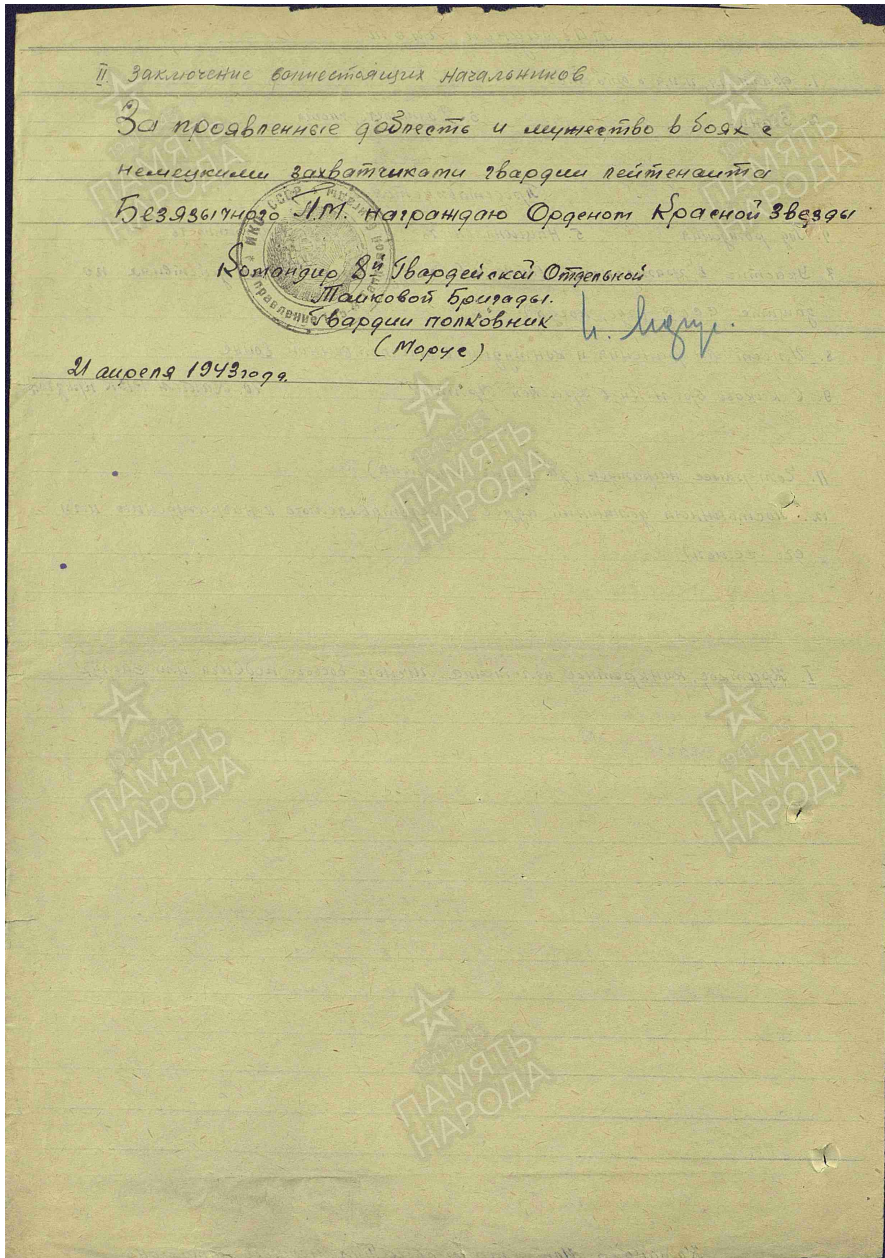 II. Заключение вышестоящих начальников
За проявленные доблесть и мужество в боях с
немецкими захватчиками гвардии лейтенанта
Безязычного Л.М. награждаю Орденом Красной Звезды
Командир 8й Гвардейской Отдельной
Танковой Бригады.
Гвардии полковник
(Морус)
21 апреля 1943 года.
НКО СССР
управление
ПАМЯТЬ
НАРОДА
ПАМЯТЬ
НАРОДА
ПАМЯТЬ
НАРОДА
ПАМЯТЬ
НАРОДА